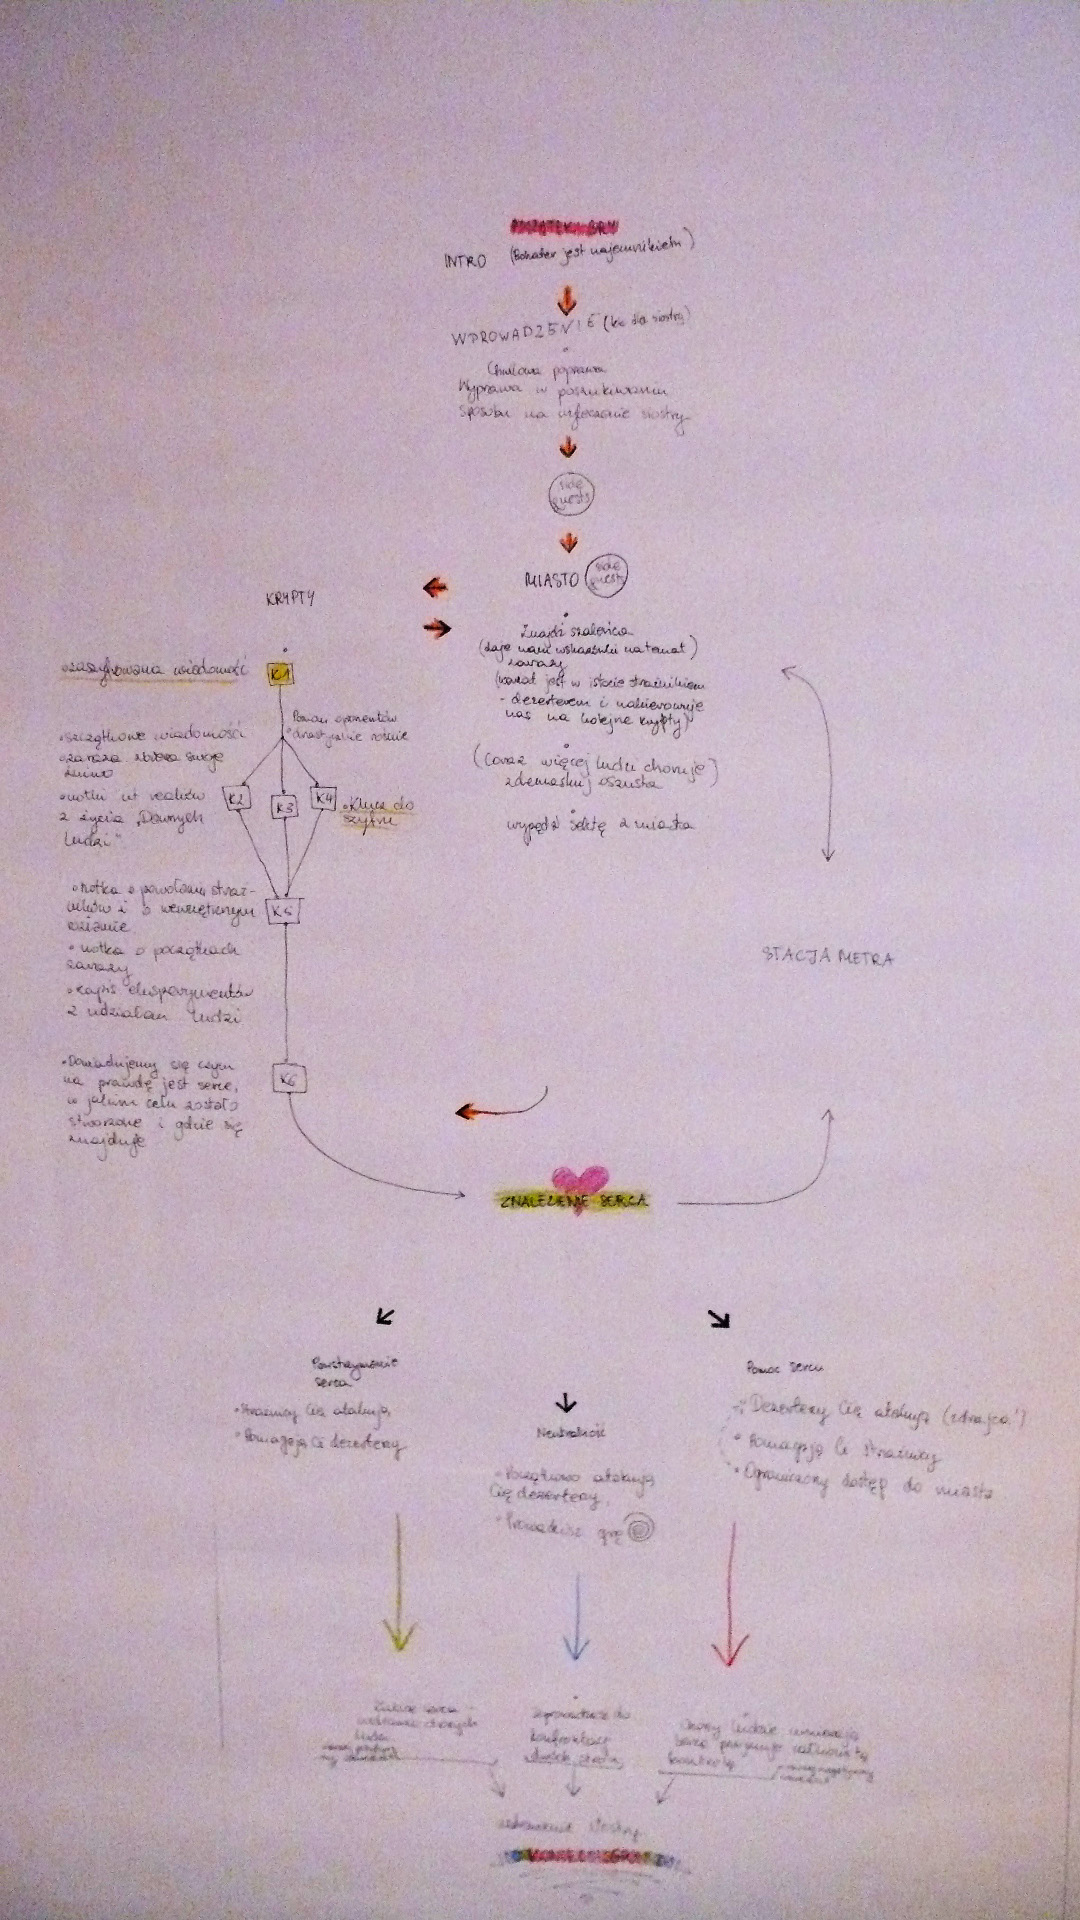 POCZĄTEK GRY
INTRO (Bohater jest najemnikiem)
WPROWADZENIE (lek dla siostry)
Chwilowa poprawa
Wyprawa w poszukiwaniu
sposobu na wyleczenie siostry
side
quests
MIASTO
side
quests
KRYPTY
Znajdź szaleńca
(daje nam wskazówki na temat)
zarazy
jest w istocie strażnikiem
- dezerterem i nakierowuje
nas na kolejne krypty)
(coraz więcej ludzi choruje)
zdemaskuj oszusta
wypędź sektę z miasta
zaszyfrowana wiadomość
K1
Poziom oponentów
drastycznie rośnie
• szczątkowe wiadomości
• zaraza zbiera swoje
żniwo
• notki nt realiów
z życia „Dawnych
ludzi"
K2
K3
K4
• Klucz do
szyfru
• Notka o powołaniu straż-
ników i o wewnętrznym
rozłamie
• notka o początkach
zarazy
• zapis eksperymentów
z udziałem ludzi
K5
STACJA METRA
• Dowiadujemy się czym
na prawdę jest serce,
w jakim celu zostało
stworzone i gdzie się
znajduje
K6
ZNALEZIENIE SERCA
Powstrzymanie
serca
• Strażnicy Cię atakują
• Pomagają Ci dezerterzy
Neutralność
• Początkowo atakują
Cię dezerterzy,
• Prowadzisz grę
Pomoc sercu
• Dezerterzy Cię atakują (zdrajca!)
• Pomagają Ci strażnicy
• Ograniczony dostęp do miasta
serca
chorych
ludzi
doprowadzasz do
konfrontacji
dwóch stron
Chorzy ludzie umierają
serce przejmuje całkowitą
kontrolę
siostry
KONIEC GRY